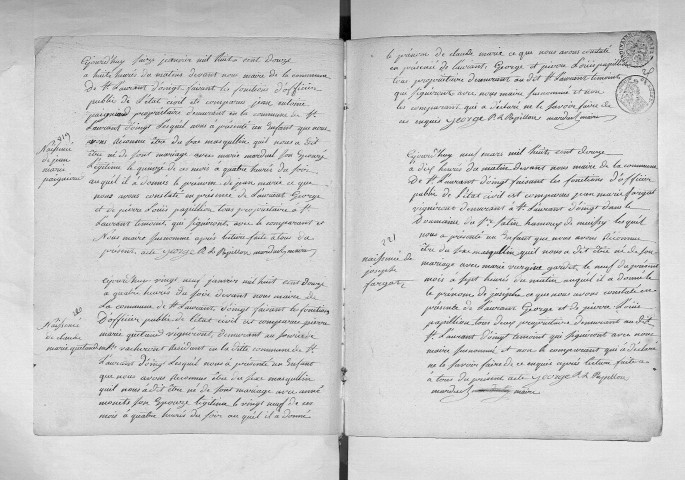 ajourd'huy seize janvier mil huit cent douze
à huite heurês du matins devant nous maire de la commune
De St Laurant d'oingt faisant les fonctions d'officier
public de l'état civil est comparus jean
propriétaire demeurant en la commune de St
Laurant d'oingt lesquel nous à présenté un Enfant que nous
avons reconnus être du sexe masqullin, qui nous à dit
être né de sont mariage avec marie mardul son Epouze
Legitime le quinze de ces mois à quatre heurês du soir
auquel il à donnée le prenome de jean marie ce que
nous avons constaté en présence de Laurant George
et de pierre Louis papillon, tous propriétaire à St
Laurant temoint, qui signeront, avec le comparant et
Nous maire susnomme après lecture faite a tous du
présent acte George P. L. Papillon marduel maire
219
Naissance
de jean
marie
ajourd'huy vingt neuf janvier mil huit cent douze
a quatre heurês du soire devant nous maire de
La commune de St Laurant d'oingt faisant les fonctions
D'officier public de l'état civil est comparus pierre
marie vigneront, demeurant au
résidant en la ditte commune de St
Laurant d'oingt Lesquel nous à présenté un Enfant
que nous avons Reconnus être du sexe masqullin
quil nous à dit être né de sont mariage avec anne
son Epouze legitime le vingt neuf de ces
mois à quatre heurês du soir au quel il à donné
220
Naissance
de claude
marie
le prénome de claude marie ce que nous avons constaté
en présence de Laurant George et pierre Louis papillon
tous propriétaire demeurant au dit St Laurant temoint
qui signeront avec nous maire susnommé et non
le comparant qui à déclaré ne le savoire faire de
ces enquis George P. L. Papillon marduel maire
ajourd'huy neuf mars mil huite cents douze
à dix heurês du matin devant nous maire de la commune
De St Laurant d'oingt faisant les fonctions d'officier
public de l'état civil est comparus jean marie fargot
vigneront demeurant à St Laurant d'oingt dans le
Domainne du Sr hameaux de lesquil
nous à présenté un Enfant que nous avons Reconnue
être du sexe masqullin quil nous à dit être né de son
mariage avec marie le neuf du présent
mois à sept heurês du matin auquel il à donné le
le prenome de joseph ce que nous avons constaté en
présence de Laurant George et de pierre Louis
papillon tous deux propriétaire demeurant au dit
St Laurant d'oingt temoint qui signeront avec nous
maire susnommé, et non le comparant qui à déclaré
ne le savoir faire de ce enquis après lecture faite
a tous du présent acte George P. L. Papillon
marduel maire
221
naissance de
joseph
fargot